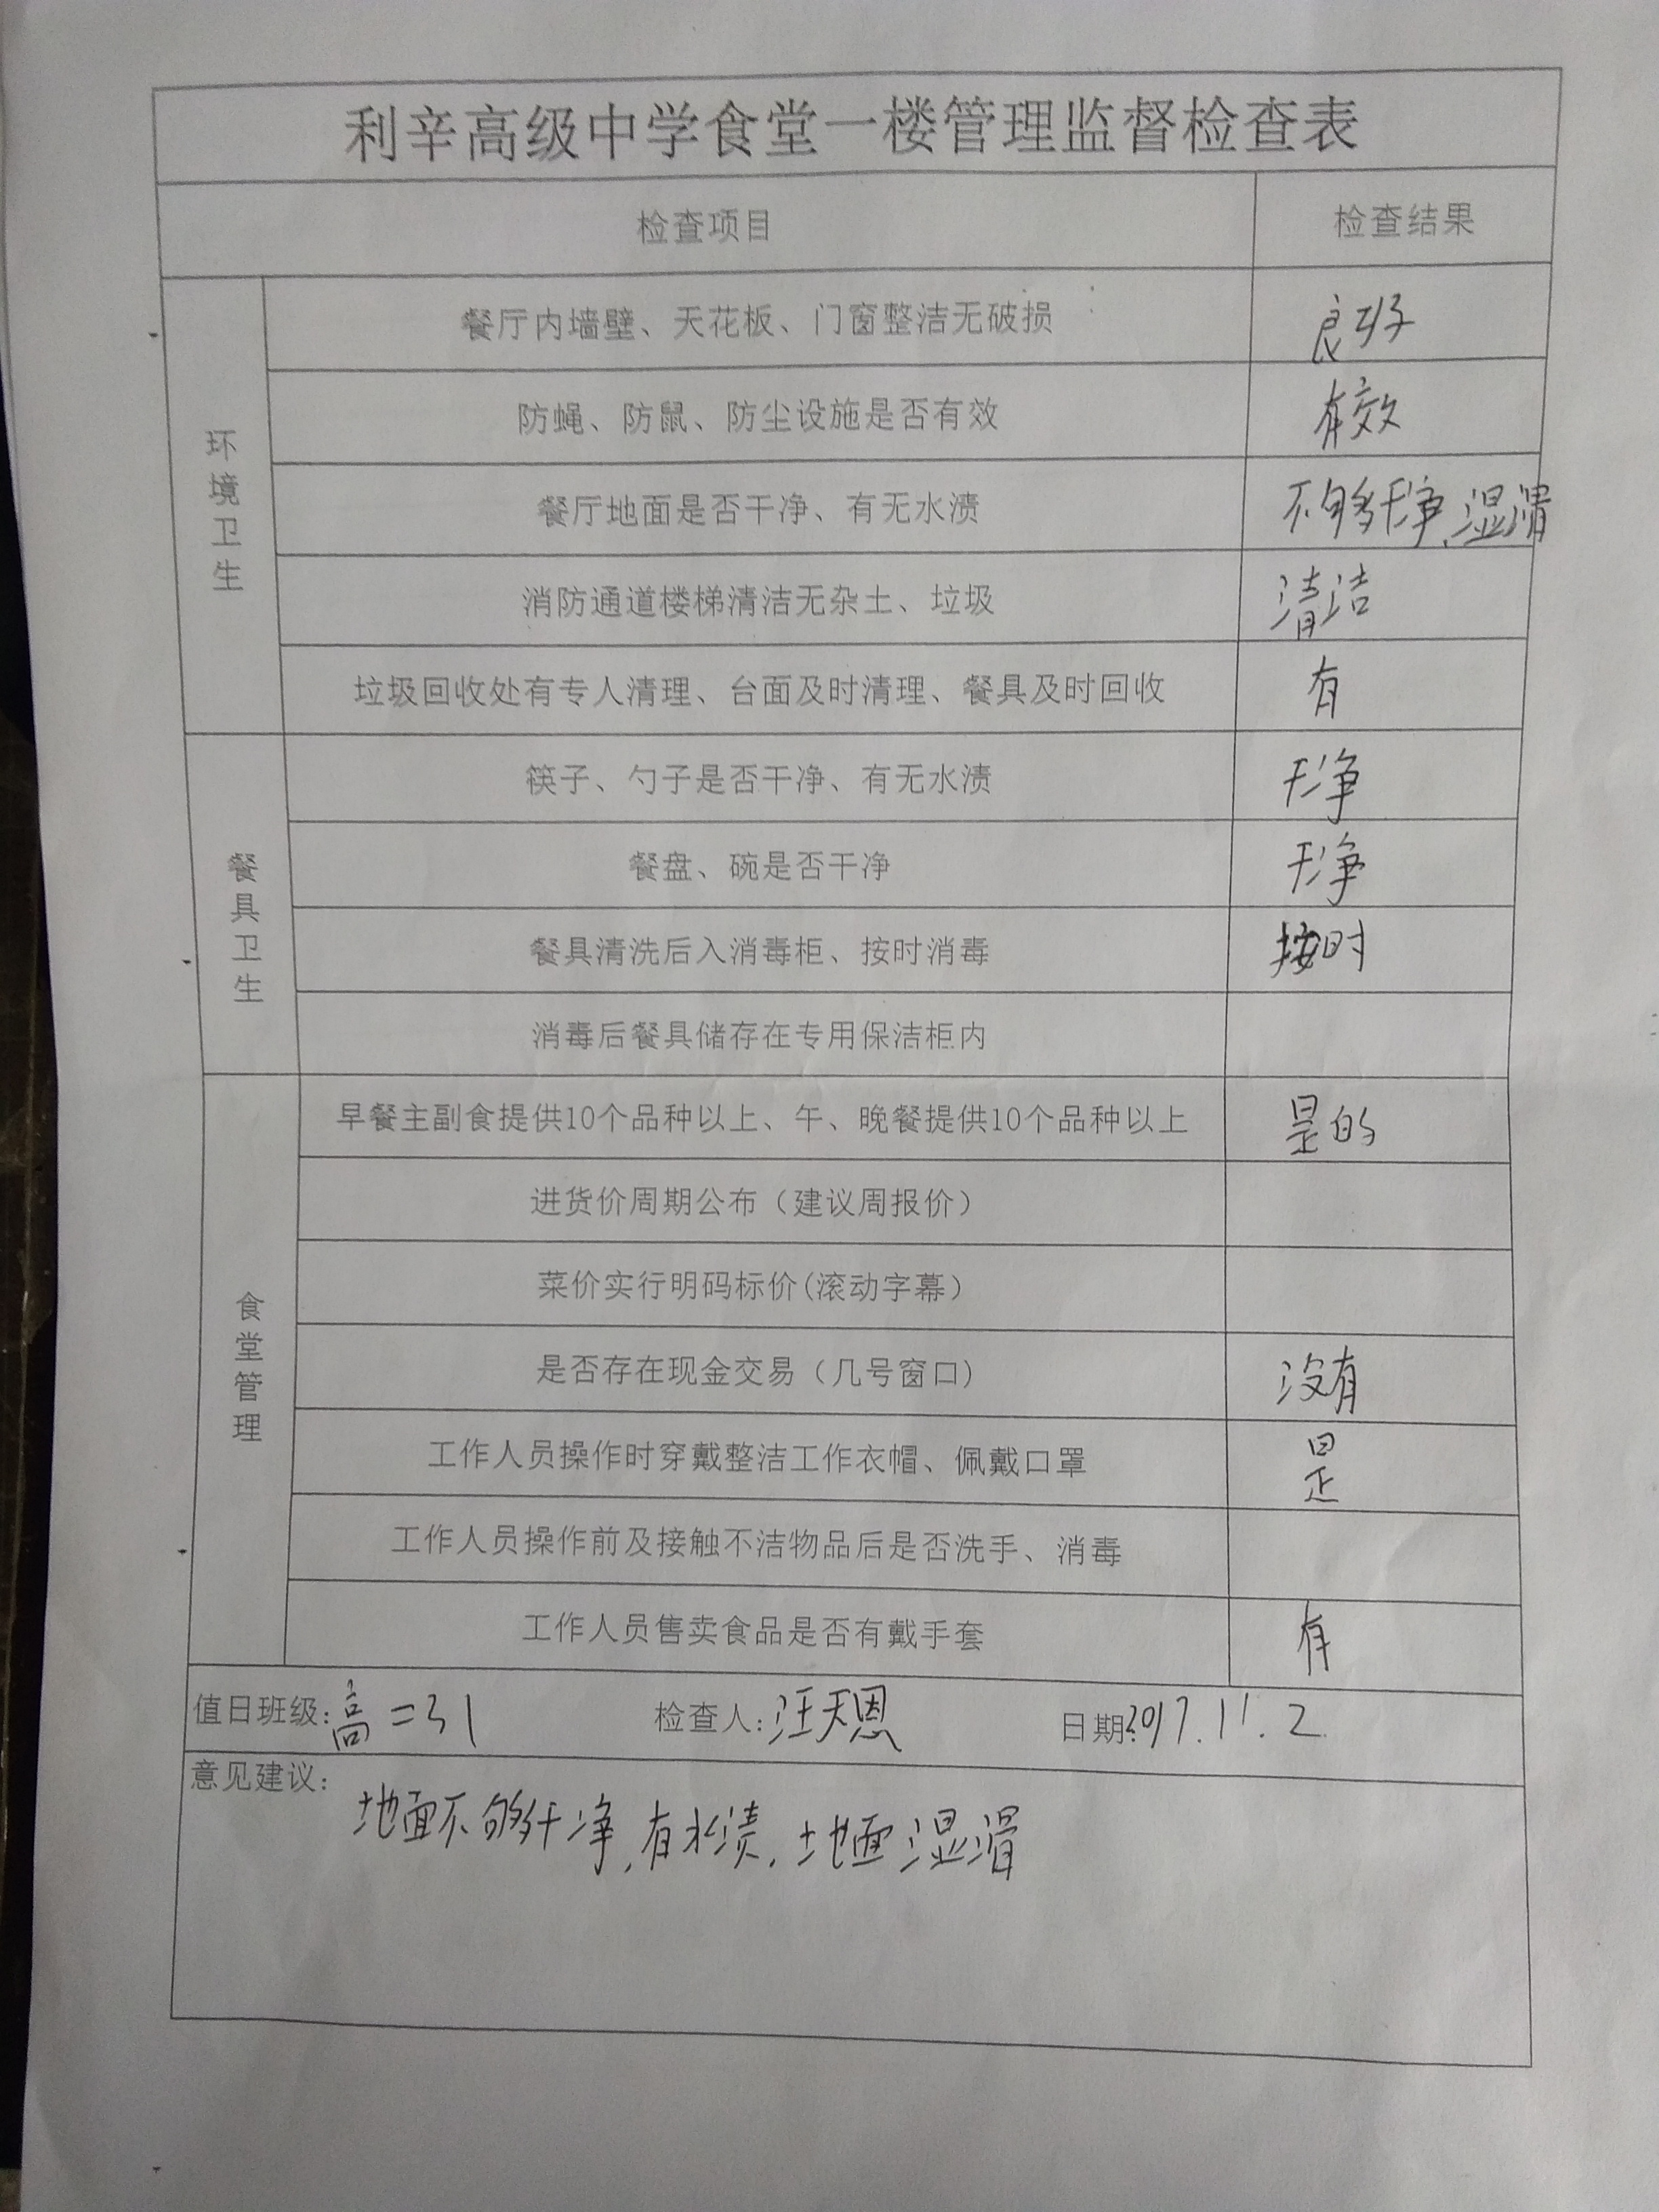 利辛高级中学食堂一楼管理监督检查表
检查项目 检查结果
环境卫生
餐厅内墙壁、天花板、门窗整洁无破损 良好
防蝇、防鼠、防尘设施是否有效 有效
餐厅地面是否干净、有无水渍 不够干净、湿滑
消防通道楼梯清洁无杂土、垃圾 清洁
垃圾回收处有专人清理、台面及时清理、餐具及时回收 有
餐具卫生
筷子、勺子是否干净、有无水渍 干净
餐盘、碗是否干净 干净
餐具清洗后入消毒柜、按时消毒 按时
消毒后餐具储存在专用保洁柜内
食堂管理
早餐主副食提供10个品种以上、午、晚餐提供10个品种以上 是的
进货价周期公布（建议周报价）
菜价实行明码标价(滚动字幕）
是否存在现金交易（几号窗口） 没有
工作人员操作时穿戴整洁工作衣帽、佩戴口罩 是
工作人员操作前及接触不洁物品后是否洗手、消毒
工作人员售卖食品是否有戴手套 有
值日班级：高二31 检查人：汪天恩 日期：2017.11.2
意见建议：
地面不够干净,有水渍,地面湿滑